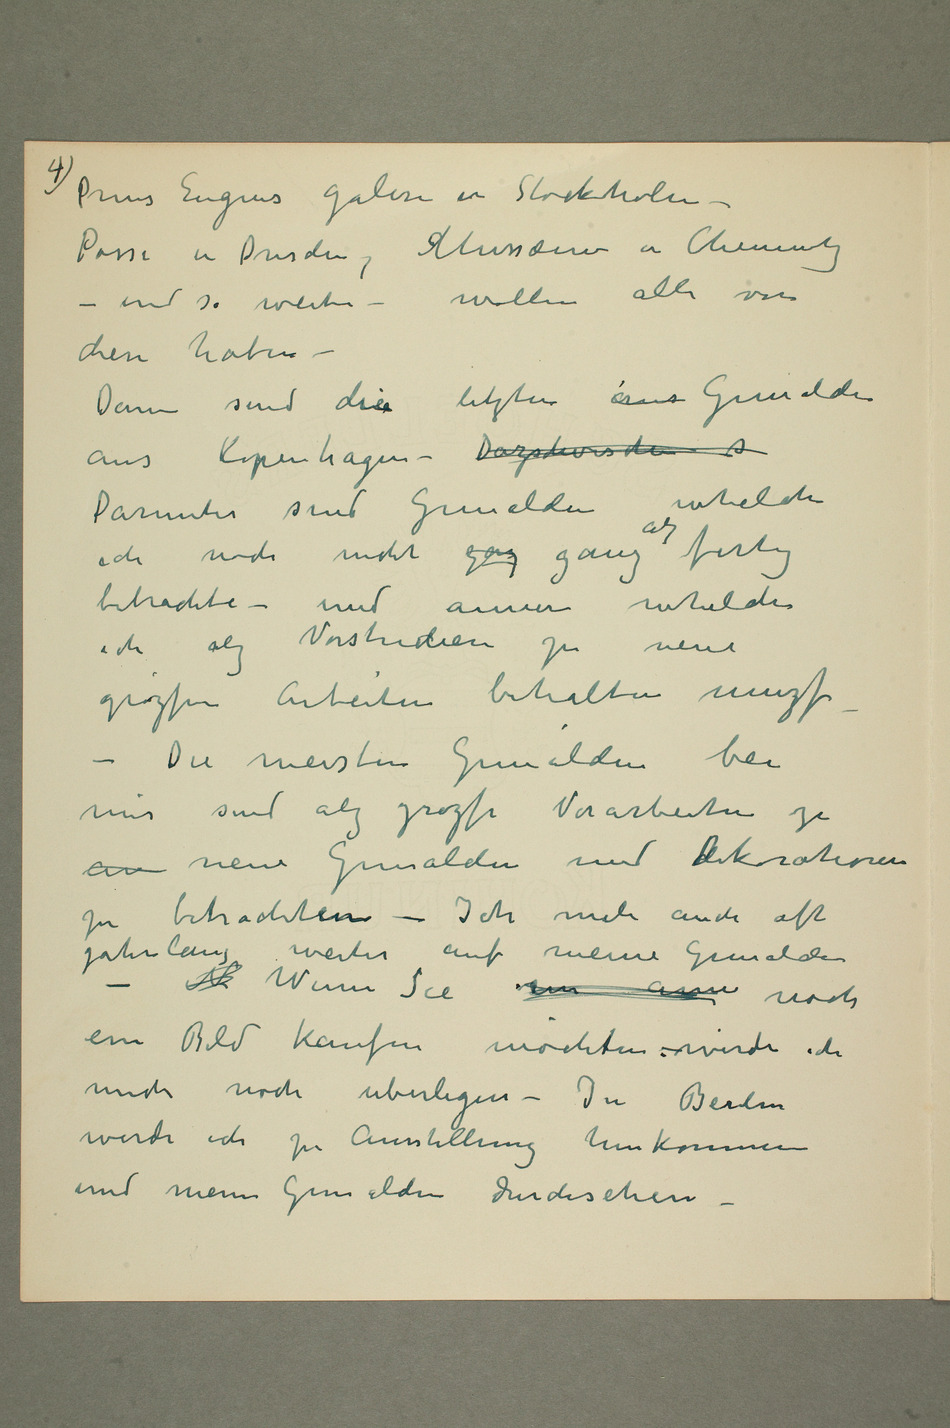 4)
Prins Eugens galeri in Stockholm –
Posse in Dresden, Mussæum in Chemnitz
– und so weiter – wollen alle von
diesen haben –
Dann sind die letzten aus Gemälden
aus Kopenhagen – Dazwischen s
Darunter sind Gemälden whelche
ich noch nicht gaz ganz alz fertig
betrachte – und annere whelche
ich alz Vorstudien zu neue
grözfre Arbeiten behalten muzf –
– Die meisten Gemälden bei
mir sind alz grozfe Vorarbeiten zu
an neue Gemälden und Dekorationen
zu betrachten – Ich male auch oft
jahrelang weiter auf meine Gemälden
– Wenn Sie noch
ein Bild kaufen möchten werde ich
mich noch uberlegen – In Berlin
werde ich zu Ausstellung hinkommen
und meine Gemälden durchsehen –